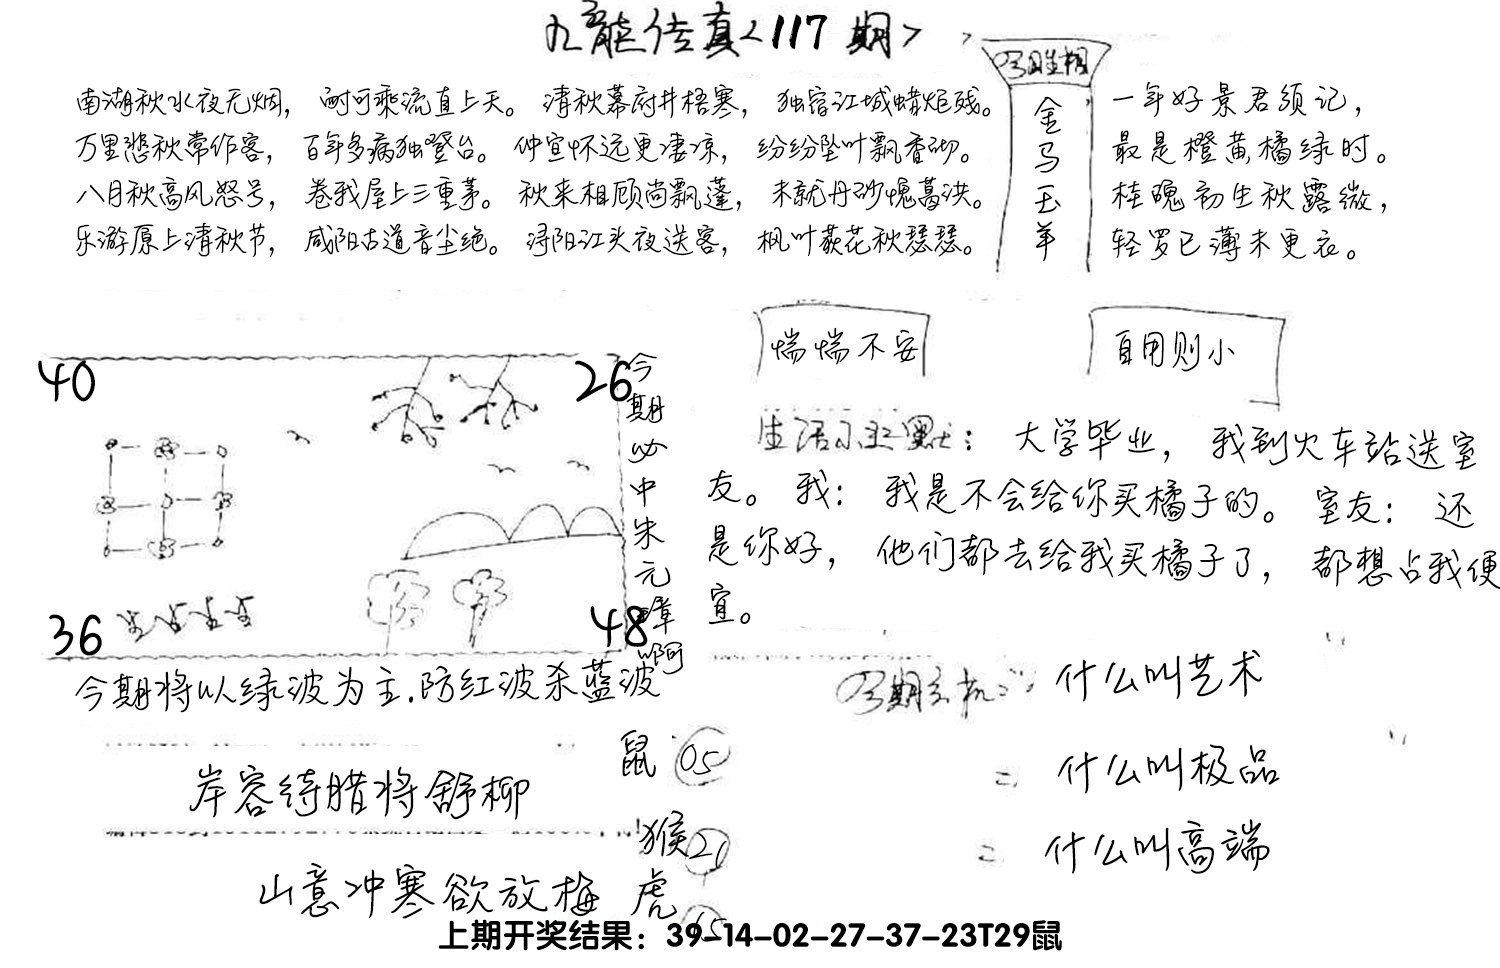 九龍传真<117期>
南湖秋水夜无烟，耐可乘流直上天。清秋幕府井梧寒，独宿江城蜡炬残。
万里悲秋常作客，百年多病独登台。仲宣怀远更凄凉，纷纷坠叶飘香砌。
八月秋高风怒号，卷我屋上三重茅。秋来相顾尚飘蓬，未就丹砂愧葛洪。
乐游原上清秋节，咸阳古道音尘绝。浔阳江头夜送客，枫叶荻花秋瑟瑟。
金马玉羊
一年好景君须记，
最是橙黄橘绿时。
桂魄初生秋露微，
轻罗已薄未更衣。
惴惴不安
自用则小
40
26
36
48
今期必中朱元璋啊
生活小幽默：大学毕业，我到火车站送室
友。我：我是不会给你买橘子的。室友：还
是你好，他们都去给我买橘子了，都想占我便
宜。
今期将以绿波为主.防红波杀蓝波
今期玄机：什么叫艺术
什么叫极品
什么叫高端
岸容待腊将舒柳
山意冲寒欲放梅
鼠 05
猴 21
虎 15
上期开奖结果：39-14-02-27-37-23T29鼠